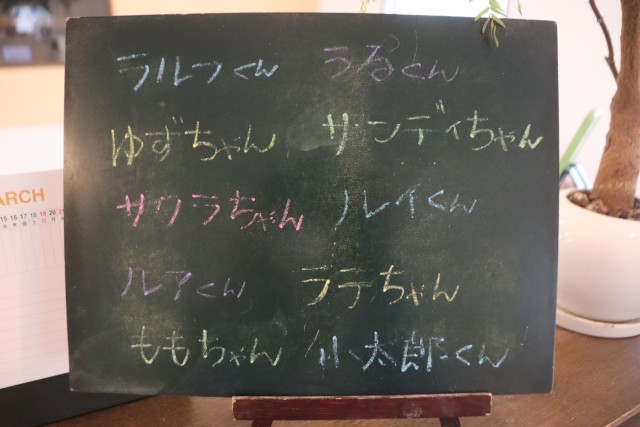 ラルフくん
らるくん
ゆずちゃん
サンディちゃん
サクラちゃん
ルイくん
ルアくん
ラテちゃん
ももちゃん
小太郎くん
ARCH
15 16 17 18 19 20